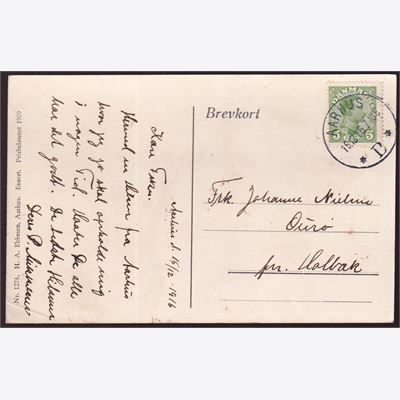 No. 1274. H. A. Ebbesen, Aarhus. Eneret. Prisbelønnet 1909
Aarhus d. 15/12 - 1916
Kære Frken.
Herved en Hilsen fra Aarhus
hvor jeg jo skal opholde mig
i nogen Tid. Haaber De alle
har det godt. De bedste Hilsener
Deres P.
Brevkort
DANMARK
5 5
AARHUS
15.12.16
* B *
Frk. Johanne Nielsen
Ourø
pr. Holbæk